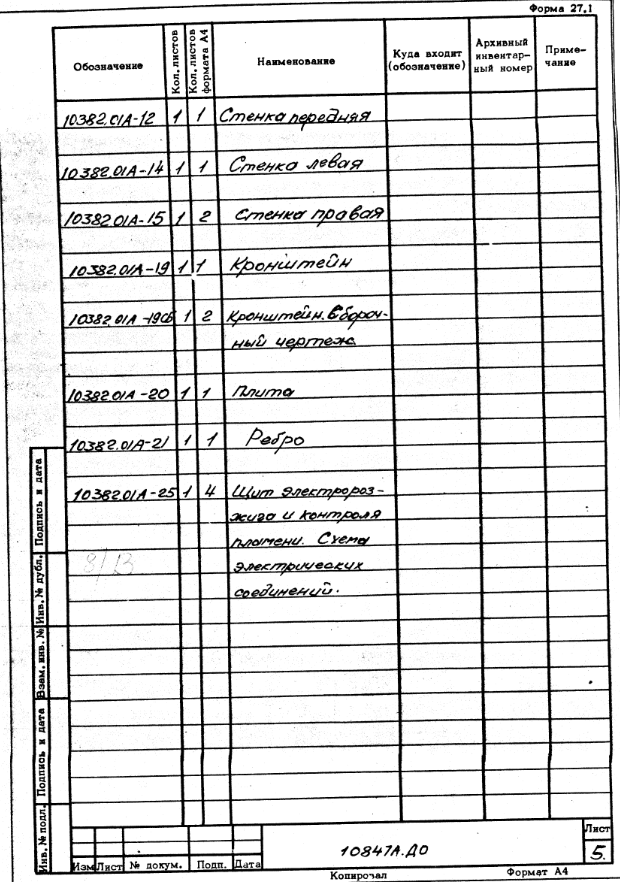 Форма 27.1
Обозначение
Кол. листов
Кол. листов формата А4
Наименование
Куда входит (обозначение)
Архивный инвентар-
ный номер
Приме-
чание
10382.01А-12 1 1 Стенка передняя
10382.01А-14 1 1 Стенка левая
10382.01А-15 1 2 Стенка правая
10382.01А-19 1 1 Кронштейн
10382.01А-19СБ 1 2 Кронштейн. Сбороч-
ный чертеж
10382.01А-20 1 1 Плита
10382.01А-21 1 1 Ребро
10382.01А-25 1 4 Щит электророз-
жига и контроля
пламени. Схема
8/13 электрических
соединений.
Подпись и дата
Инв. № дубл.
Взам. инв. №
Подпись и дата
Инв. № подл.
Изм Лист № докум. Подп. Дата
10847А.Д0
Лист
5.
Копировал Формат А4